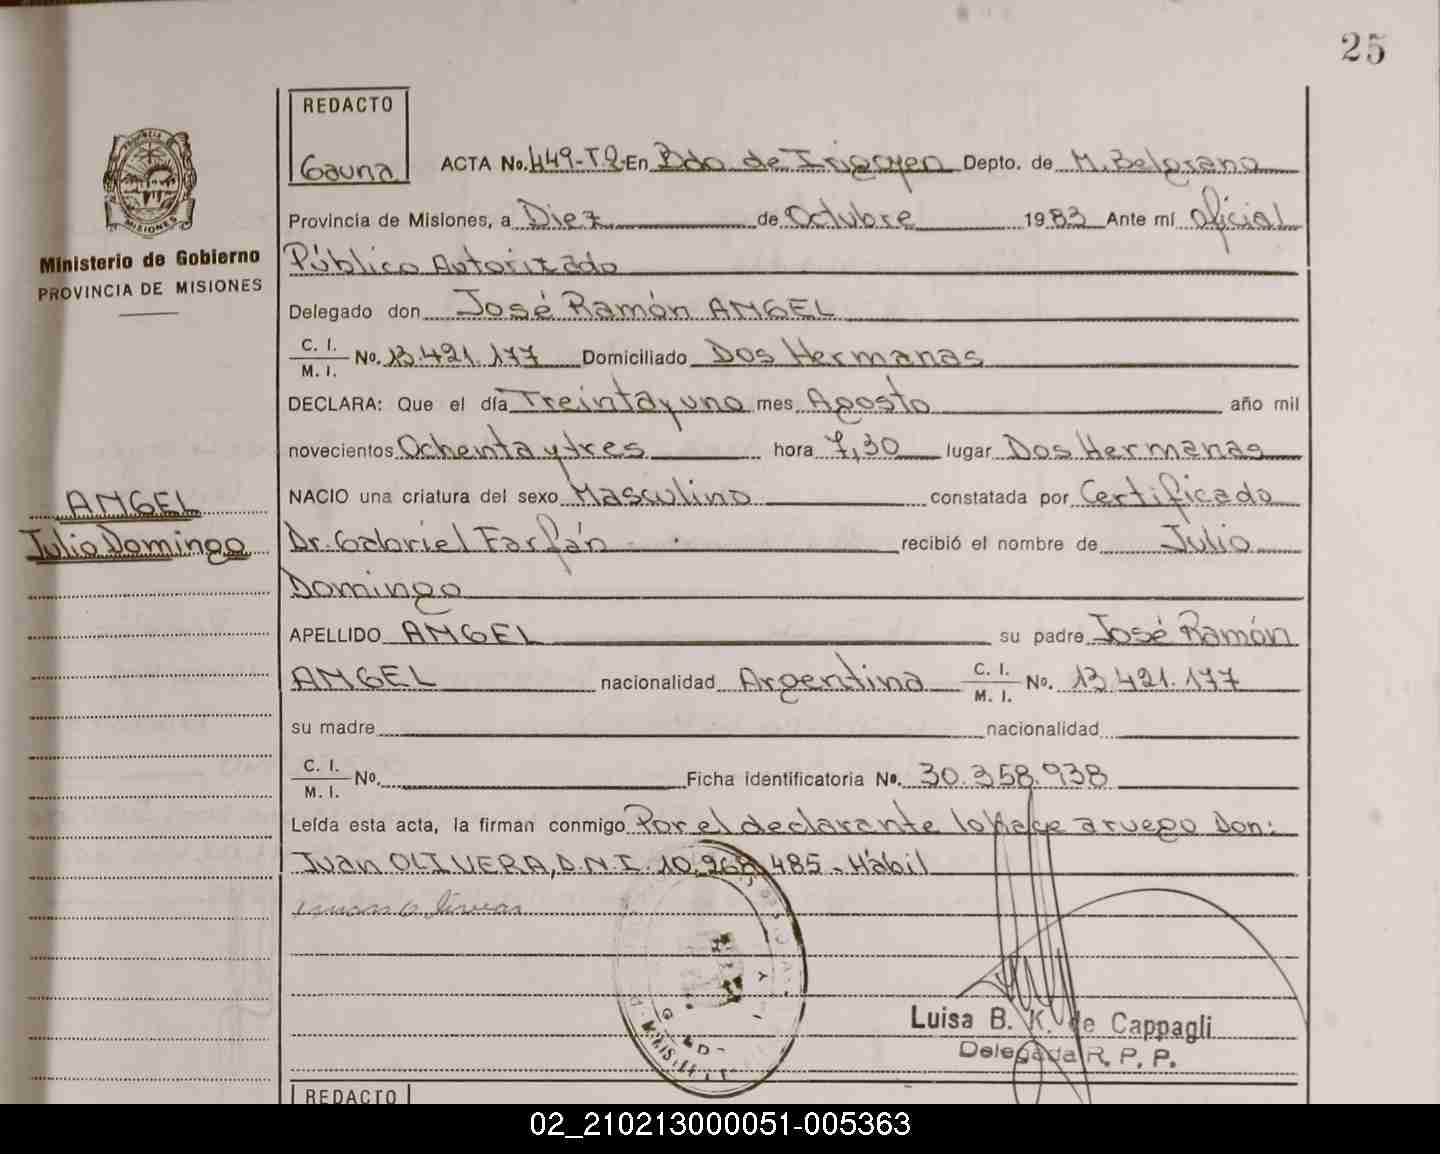 25
REDACTO
Gauna
ACTA No. 449-T2-En Bdo de Irigoyen Depto. de M. Belgrano
Provincia de Misiones, a Diez de Octubre 1983 Ante mí Oficial
Público Autorizado
Ministerio de Gobierno
PROVINCIA DE MISIONES
Delegado don José Ramón ANGEL
C. I.
M. I.
No. 13.421.177 Domiciliado Dos Hermanas
DECLARA: Que el día Treinta y uno mes Agosto año mil
novecientos Ochenta y tres hora 7,30 lugar Dos Hermanas
NACIO una criatura del sexo Masculino constatada por Certificado
ANGEL
Julio Domingo
Dr. Gabriel Farfán recibió el nombre de Julio
Domingo
APELLIDO ANGEL su padre José Ramón
ANGEL nacionalidad Argentina C. I. M. I. No. 13.421.177
su madre nacionalidad
C. I.
M. I.
No. Ficha identificatoria No. 30.358.938
Leída esta acta, la firman conmigo Por el declarante lo hace a ruego Don:
Juan OLIVERA, D.N.I. 10.268.485.- Hábil
Luisa B. K. de Cappagli
Delegada R. P. P.
REDACTO
02_210213000051-005363